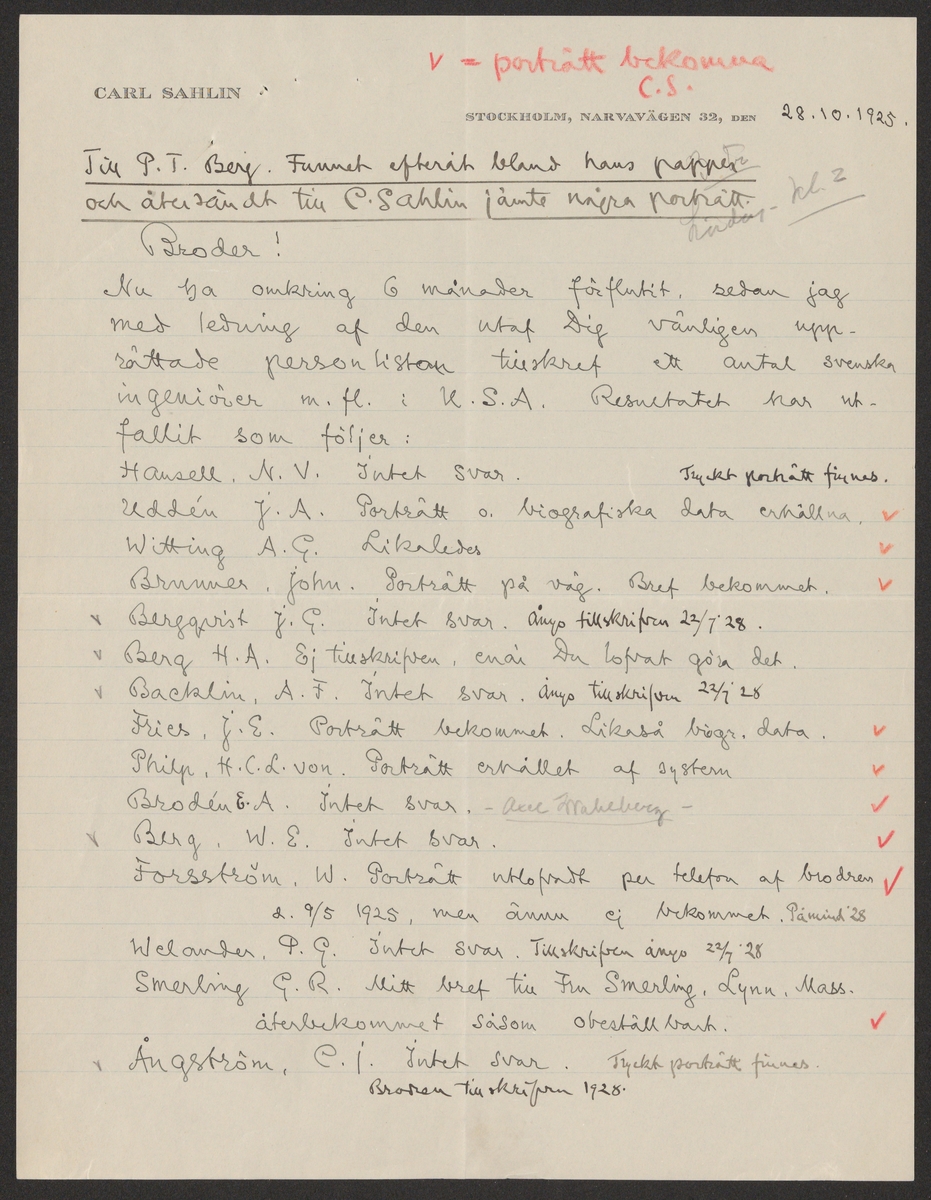 v = porträtt bekomma
C.S.
CARL SAHLIN
STOCKHOLM, NARVAVÄGEN 32, DEN 28.10.1925.
Till P.T. Berg. Funnet efteråt bland hans papper
och återsändt till C. Sahlin jämte några porträtt.
kl. 2
Broder!
Nu ha omkring 6 månader förflutit, sedan jag
med ledning af den utaf Dig vänligen upp-
rättade personlistan tillskref ett antal svenska
ingeniörer m.fl. i U.S.A. Resultatet har ut-
fallit som följer:
Hansell, N.V. Intet svar. Tryckt porträtt finnes.
Uddén J.A. Porträtt o. biografiska data erhållna. v
Witting A.G. Likaledes v
Brunner, John. Porträtt på väg. Bref bekommet. v
v Bergqvist J.G. Intet svar. Ånyo tillskrifven 22/7 28.
v Berg H.A. Ej tillskrifven, enär Du lofvat göra det.
v Backlin, A.F. Intet svar. Ånyo tillskrifven 22/7 '28
Fries, J.E. Porträtt bekommet. Likaså biogr. data. v
Philp, H.C.L. von. Porträtt erhållet af system v
Brodén E.A. Intet svar. - Axel Wahlberg - v
v Berg, W.E. Intet svar. v
Forsström, W. Porträtt utlofvadt per telefon af brodren v
d. 9/5 1925, men ännu ej bekommet. Påmind '28
Welander, P.G. Intet svar. Tillskrifven ånyo 22/7 '28
Smerling G.R. Mitt bref till Fru Smerling, Lynn, Mass.
återbekommet såsom obeställbart. v
v Ångström, C.J. Intet svar. Tryckt porträtt finnes.
Brodren tillskrifven 1928.